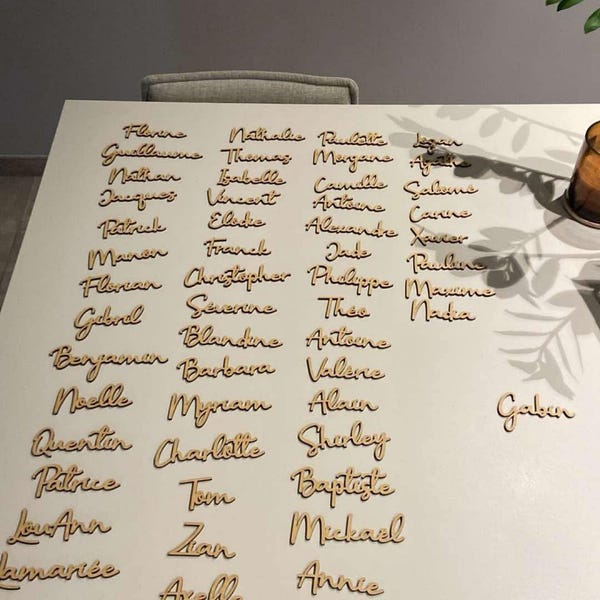 Florine
Guillaume
Nathan
Jacques
Patrick
Manon
Florian
Gabril
Benjamin
Noelle
Quentin
Patrice
LouAnn
Lamariée
Nathalie
Thomas
Isabelle
Vincent
Elodie
Franck
Christopher
Séverine
Blandine
Barbara
Myriam
Charlotte
Tom
Zian
Axelle
Paulette
Morgane
Camille
Antoine
Alexandre
Jade
Philippe
Théo
Antoine
Valérie
Alain
Shirley
Baptiste
Mickaël
Annie
Logan
Agathe
Salomé
Carine
Xavier
Pauline
Maxime
Nadia
Gabin